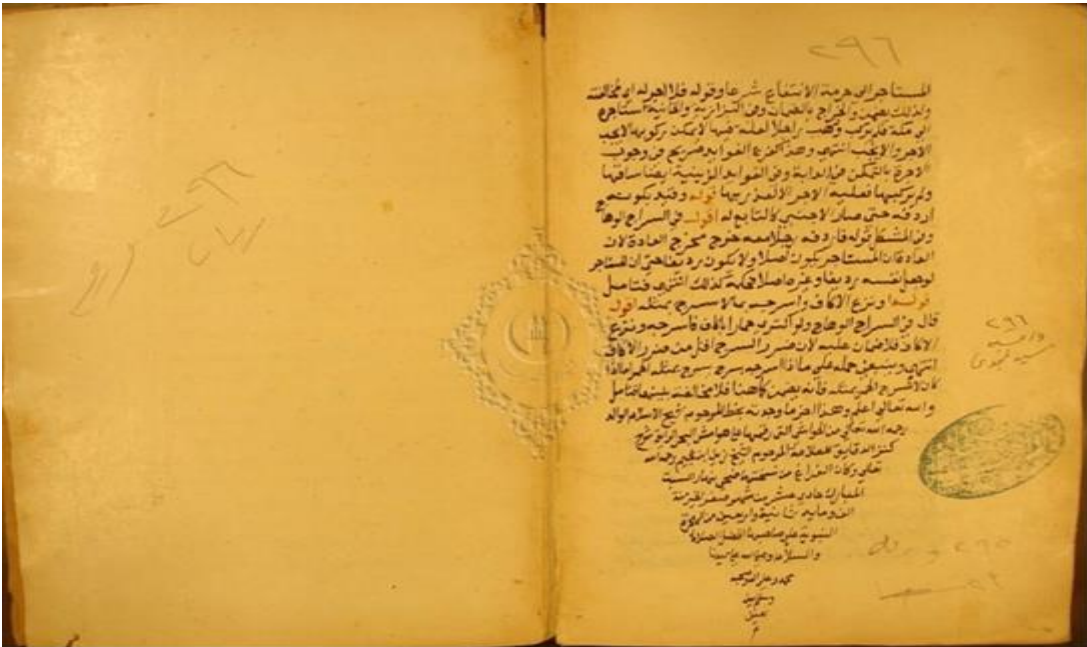 ٢٩٦
المستاجر الى حرمة الانتفاع شرعا وقوله فلا اجر له اي لمخالفته
ولذلك يضمن والخراج بالضمان وفي البزازية والخانية استاجره
الى مكة فلم يركب وذهب راجلا لعلة فيها لا يمكن ركوبها لا يجب
الاجر والا يجب انتهى وهذا الفرع الغوابد صريح في وجوب
الاجرة بالتمكن في الدابة وفي الفوايد الزينية ايضا ساقها
ولم يركبها فعليه الاجر الا لعذر بها قوله وقيد بكونه
اردفه حتى صار الاجنبي كالتابع له اقول في السراج الوهاج
وفي المشكل قوله فاردفه رجلا معه خرج مخرج العادة لان
العادة ان المستاجر يكون اصلا ولا يكون رديفا حتى ان المستاجر
لو جعل نفسه رديفا وغيره اصلا فحكمه كذلك انتهى فتامل
قوله ونزع الاكاف واسرجه بما لا يسرج بمثله اقول
قال في السراج الوهاج ولو اكترى حمارا باكاف فاسرجه ونزع
الاكاف فلا ضمان عليه لان ضرر السرج اقل من ضرر الاكاف
انتهى وينبغي حمله على ما اذا اسرجه بسرج يسرج بمثله الحمر اما اذا
كان لا تسرج الحمر بمثله فانه يضمن كما هنا فلا مخالفة بينهما فتامل
والله تعالى اعلم وهذا اخر ما وجدته بخط المرحوم شيخ الاسلام الوالد
رحمه الله تعالى من الحواشي التي رقمها على هوامش البحر الرايق شرح
كنز الدقايق للعلامة المرحوم الشيخ زين ابن نجيم رحمه الله
تعالى وكان الفراغ من نسختها ضحي نهار السبت
المبارك حادي عشرين شهر صفر الخير سنة
الف وماية ثمانية واربعين من الهجرة
النبوية على صاحبها افضل الصلاة
والسلام وصلى الله على سيدنا
محمد وعلى اله وصحبه
وسلم
م
٢٩٦
٢٩٥
٢٩٦